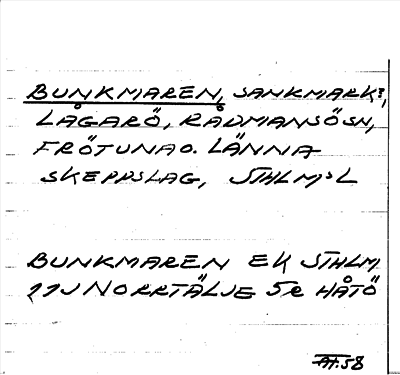 BUNKMAREN, SANKMARK?,
LÅGARÖ, RÅDMANSÖSN,
FRÖTUNA O. LÄNNA
SKEPPSLAG, STHLMSL
BUNKMAREN EK STHLM
11J NORRTÄLJE 5e HÅTÖ
AT.58